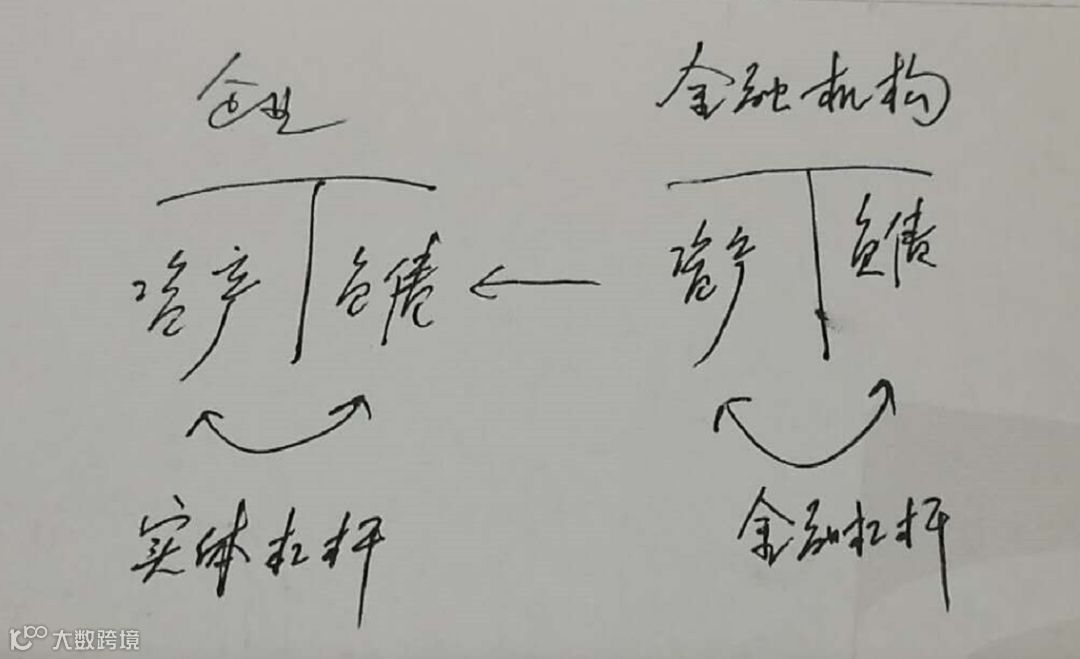 企业 金融机构
资产 负债 资产 负债
实体杠杆 金融杠杆
大数跨境